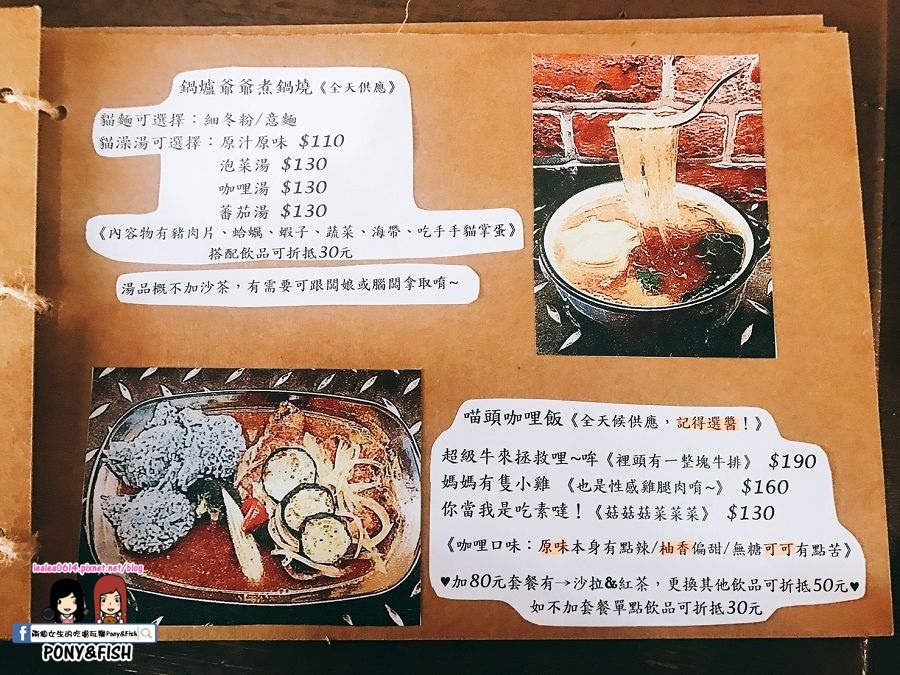 鍋爐爺爺煮鍋燒《全天供應》
貓麵可選擇：細冬粉/意麵
貓澡湯可選擇：原汁原味 $110
泡菜湯 $130
咖哩湯 $130
蕃茄湯 $130
《內容物有豬肉片、蛤蠣、蝦子、蔬菜、海帶、吃手手貓掌蛋》
搭配飲品可折抵30元
湯品概不加沙茶，有需要可跟闆娘或腦闆拿取唷~
喵頭咖哩飯《全天候供應，記得選醬！》
超級牛來拯救哩~哞《裡頭有一整塊牛排》 $190
媽媽有隻小雞 《也是性感雞腿肉唷~》 $160
你當我是吃素噠！《菇菇菇菜菜菜》 $130
《咖哩口味：原味本身有點辣/柚香偏甜/無糖可可有點苦》
♥加80元套餐有→沙拉&紅茶，更換其他飲品可折抵50元♥
如不加套餐單點飲品可折抵30元
lealea0614.pixnet.net/blog
兩個女生的吃喝玩樂Pony&Fish
PONY&FISH